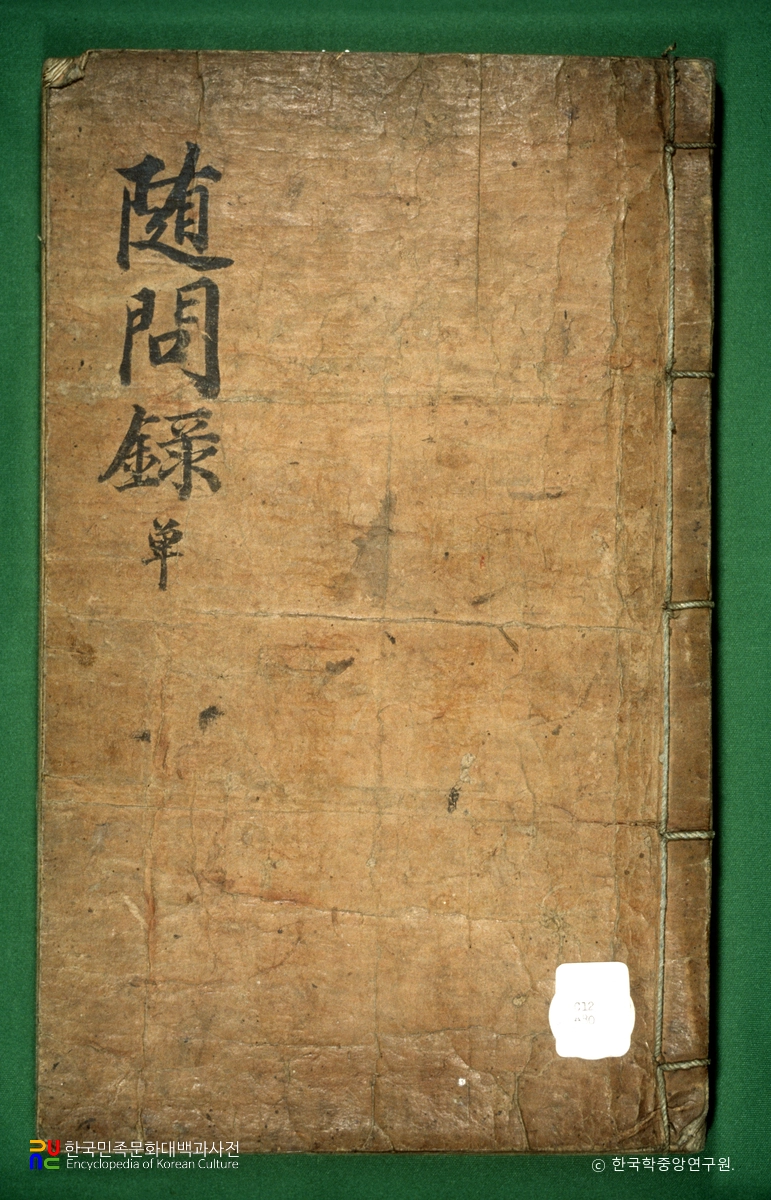 随問錄
単
한국민족문화대백과사전
Encyclopedia of Korean Culture
© 한국학중앙연구원.